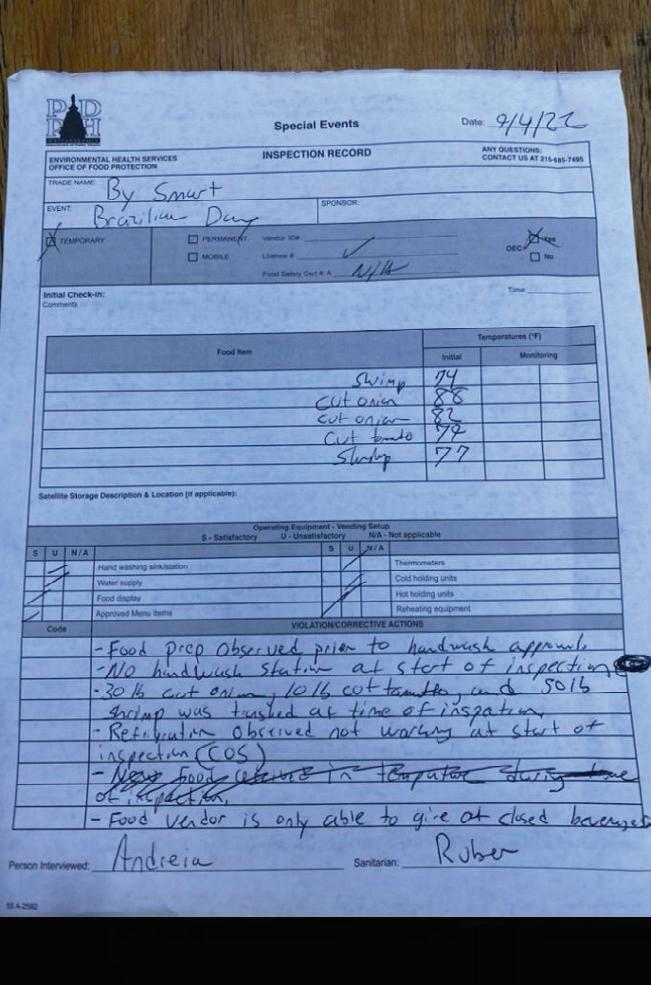 PD
PH
Special Events
Date: 9/4/22
ENVIRONMENTAL HEALTH SERVICES
OFFICE OF FOOD PROTECTION
INSPECTION RECORD
ANY QUESTIONS:
CONTACT US AT 215-685-7495
TRADE NAME: By Smart
EVENT: Brazilian Day
SPONSOR:
TEMPORARY
PERMANENT
MOBILE
Vendor ID#:
License #
Food Safety Cert #: A N/A
OEC: Yes
No
Initial Check-in:
Time:
Comments
Food Item
Temperatures (°F)
Initial
Monitoring
Shrimp 74
Cut onion 88
cut onion 82
Cut tomato 74
Shrimp 77
Satellite Storage Description & Location (if applicable):
Operating Equipment - Vending Setup
S - Satisfactory U - Unsatisfactory N/A - Not applicable
S U N/A S U N/A
Hand washing sink/station Thermometers
Water supply Cold holding units
Food display Hot holding units
Approved Menu Items Reheating equipment
Code VIOLATION/CORRECTIVE ACTIONS
- Food prep observed prior to handwash approval.
- No handwash station at start of inspection
- 30 lb cut onion, 10 lb cut tomato, and 50 lb
shrimp was trashed at time of inspection.
- Refrigeration Observed not working at start of
inspection (COS)
- food in temperature during
of inspection.
- Food vendor is only able to give at closed beverages
Person Interviewed: Andreia Sanitarian: Ruber